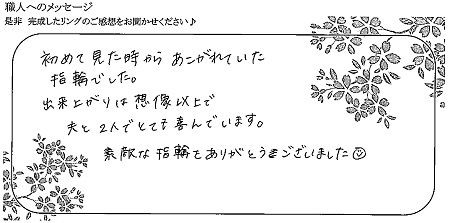 職人へのメッセージ
是非 完成したリングのご感想をお聞かせください♪
初めて見た時から あこがれていた
指輪でした。
出来上がりは想像以上で
夫と2人でとても喜んでいます。
素敵な指輪をありがとうございました☺